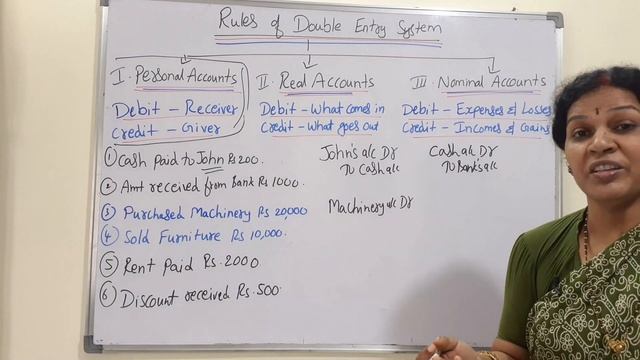 Rules of Double Entry System
I Personal Accounts
Debit - Receiver
Credit - Giver
II Real Accounts
Debit - What comes in
Credit - What goes out
III Nominal Accounts
Debit - Expenses & Losses
Credit - Incomes & Gains
① Cash Paid to John Rs 200.
② Amt received from Bank Rs 1000.
③ Purchased Machinery Rs 20,000
④ Sold Furniture Rs 10,000.
⑤ Rent Paid Rs. 2000
⑥ Discount received Rs. 500.
John's a/c Dr
To Cash a/c
Cash a/c Dr
To Bank's a/c
Machinery a/c Dr